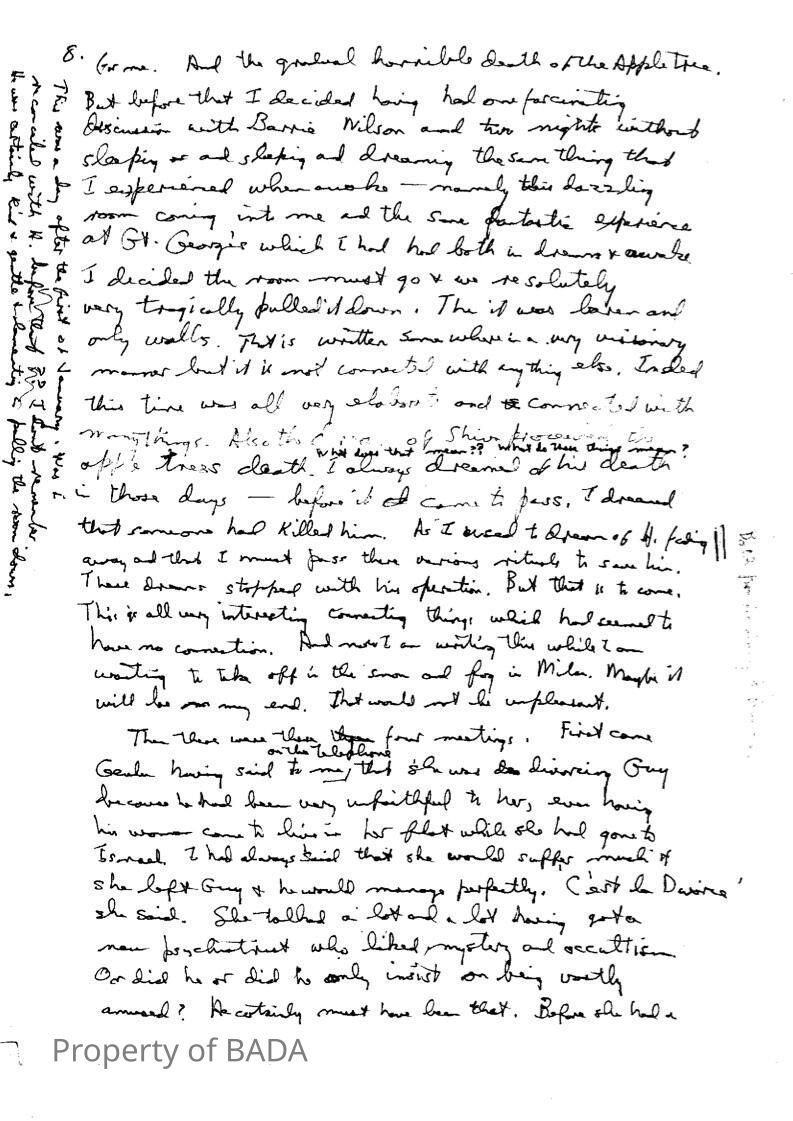 8.
for me. And the gradual horrible death of the Apple Tree.
But before that I decided having had one fascinating
discussion with Barrie Nilson and two nights without
sleeping or and sleeping and dreaming the same thing that
I experienced when awake — namely this dazzling
room coming into me and the same fantastic experience
at Gt. George's which I had had both in dreams & awake
I decided the room must go & we resolutely
very tragically pulled it down. The it was barren and
only walls. That is written somewhere in a very visionary
manner but it is not connected with anything else. Indeed
this time was all very elaborate and connected with
many things. Also the of Shiva preceded the
what does that mean?? what do these things mean?
apple trees death. I always dreamed of his death
in those days — before it came to pass. I dreamed
that someone had killed him. As I used to dream of H. fading
away and that I must pass there various rituals to save him.
These dreams stopped with his operation. But that is to come.
This is all very interesting connecting things which had seemed to
have no connection. And now I am writing this while I am
waiting to take off in the snow and fog in Milan. Maybe it
will be my end. That would not be unpleasant.
Then there were these four meetings. First came
on the telephone
Geula having said to me, that she was divorcing Guy
because he had been very unfaithful to her, even having
his woman come to live in her flat while she had gone to
Israel. I had always said that she would suffer much if
she left Guy & he would manage perfectly. C'est la Divorce'
she said. She talked a lot and a lot having got a
new psychiatrist who liked mystery and occultism
Or did he or did he only insist on being vastly
amused? He certainly must have been that. Before she had a
This was a day after the first of January. Was I
reconciled with H. before that I don't remember
He was certainly kind & gentle & lamenting pulling the room down.
Property of BADA